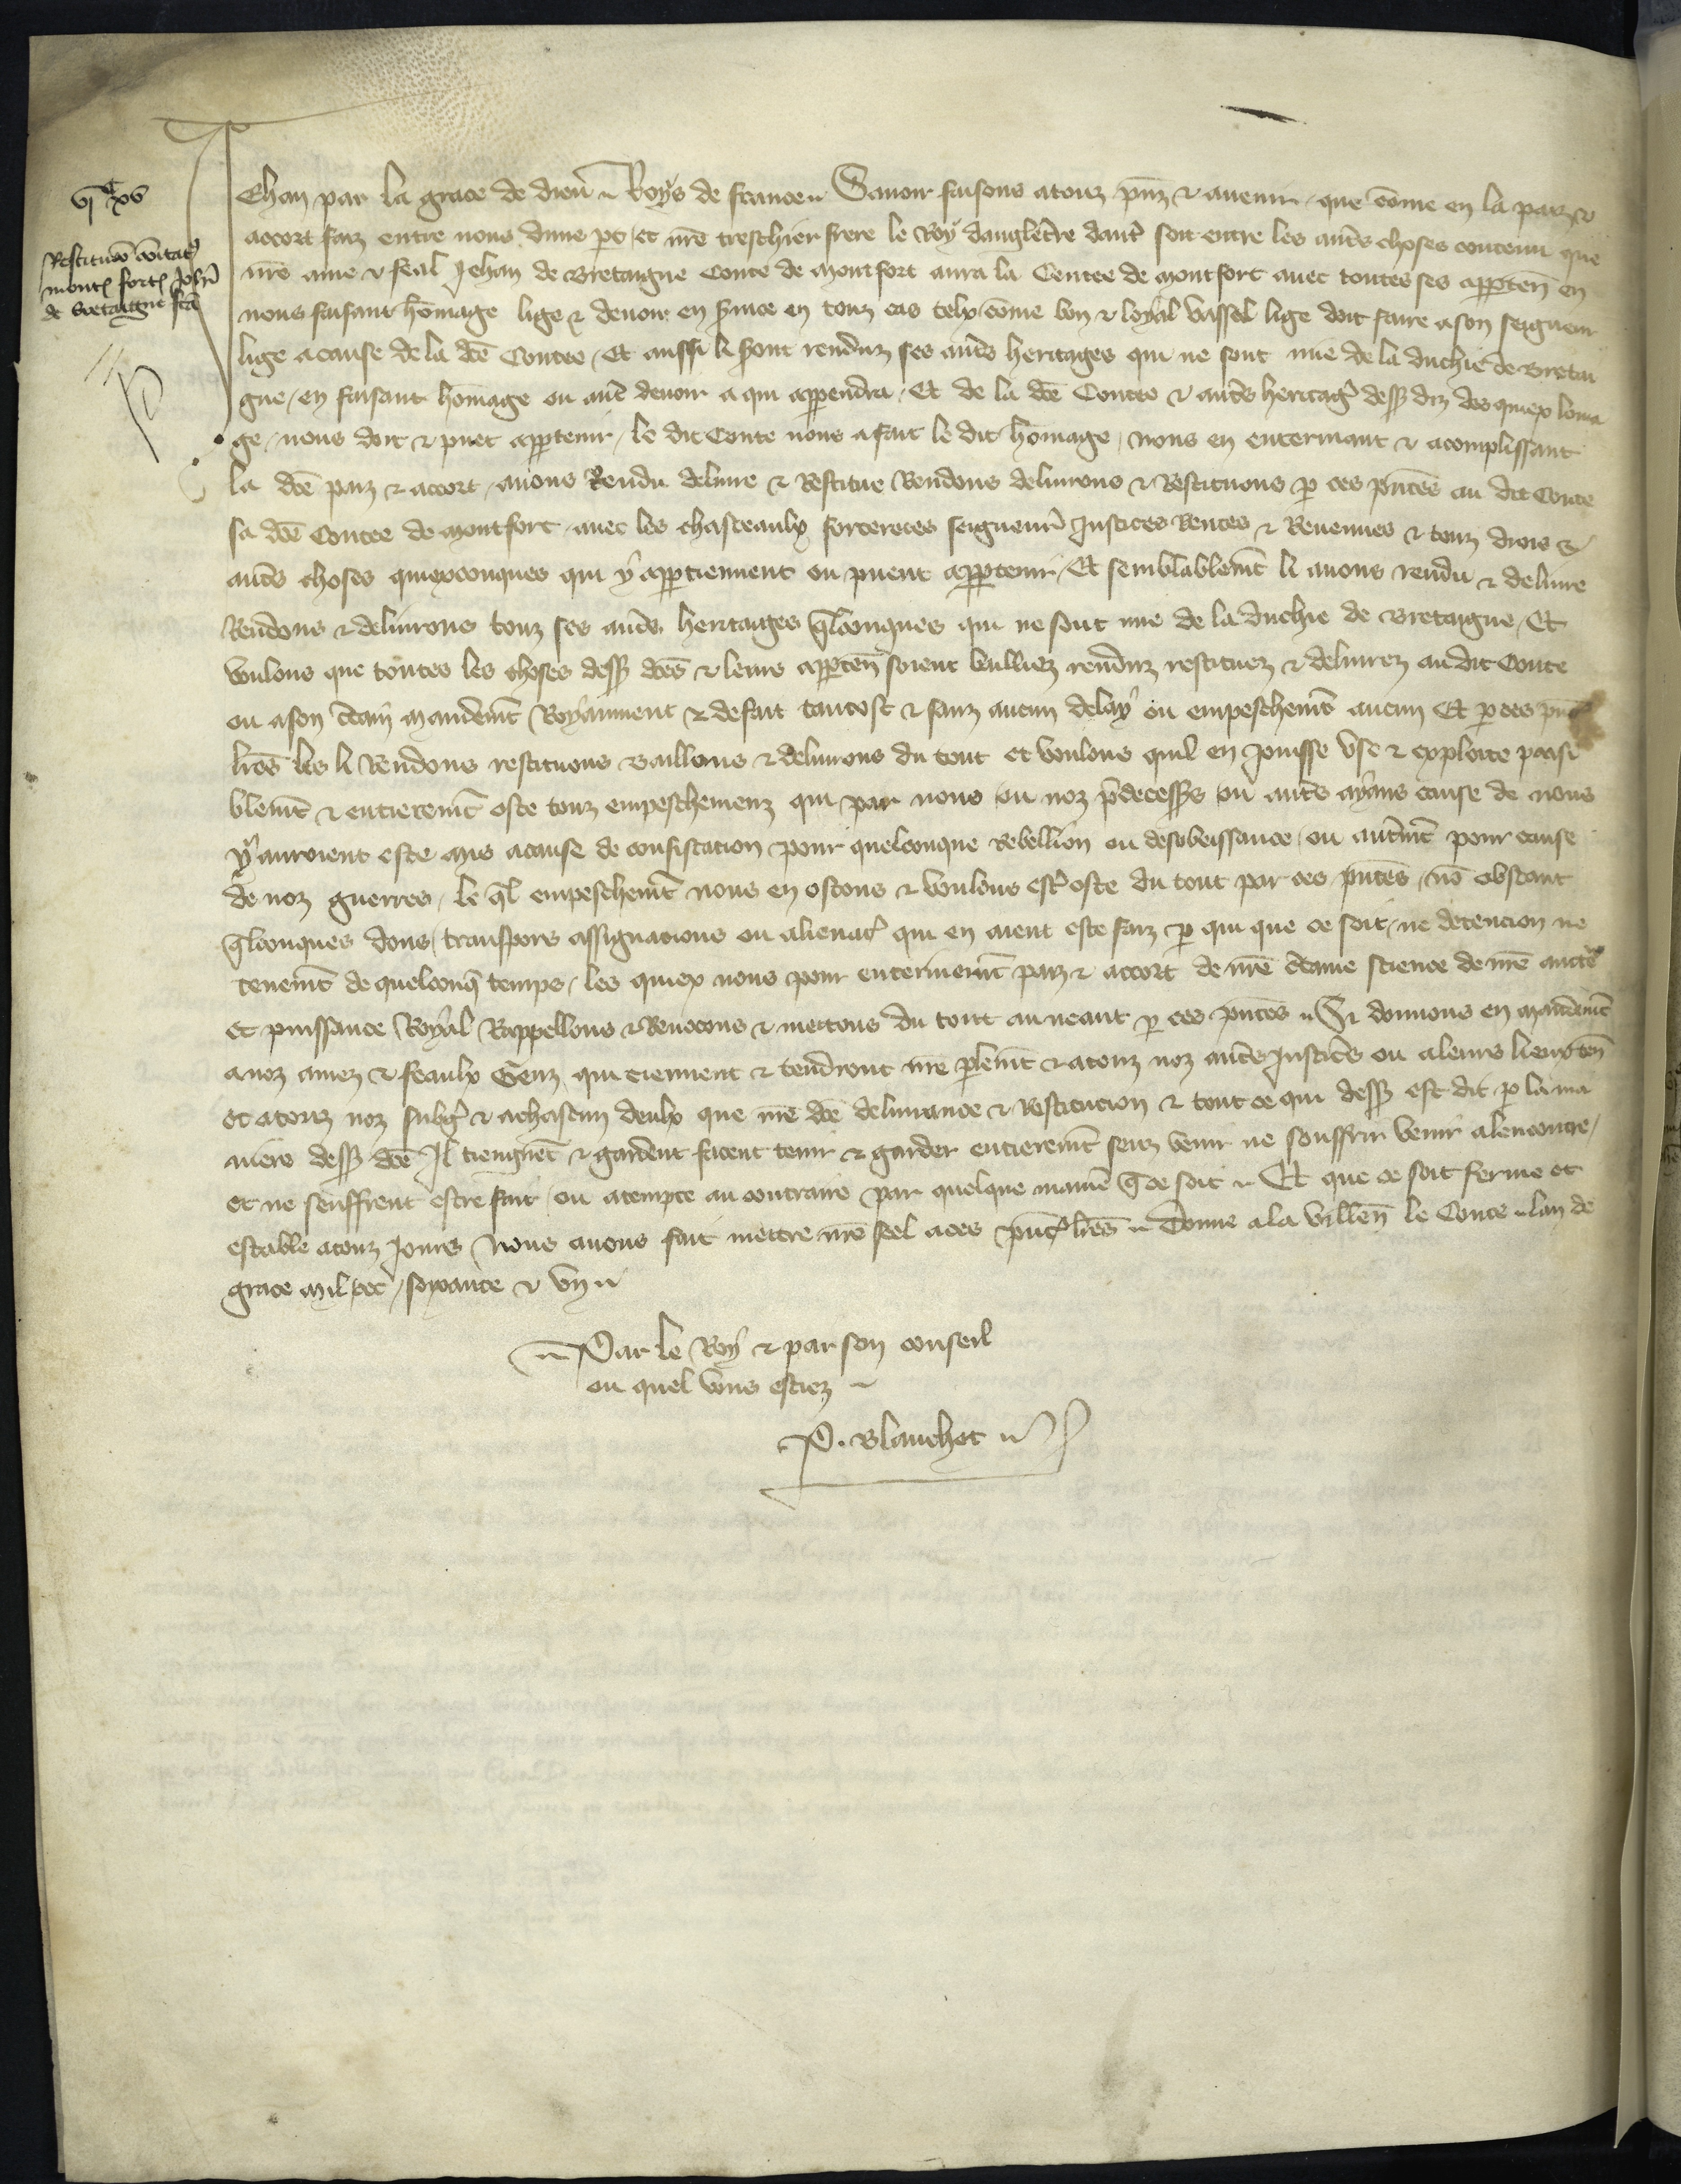 vjcxv
Restitucō cōitat9
mont9 fort9 Joh̄i
de bretaigne scā
Jehan par la grace de dieu Roys de france Sauoir faisons a touz pn̄z & auenir que cōme en la paiz &
accort faiz entre nous dune pt et nr̄e treschier frere le Roy dangleterre dautr̄ soit entre les autr̄s choses contenu que
nr̄e ame & feal Jehan de Bretaigne Conte de Montfort aura la Contee de Montfort auec toutes ses apperten̄ en
nous faisant hōmage lige & deuoir en s̄uice en touz cas telx cōme bon & loyal vassel lige doit faire a son seigneur
lige a cause de la dc̄e Contee Et aussi li s̄ont renduz ses autr̄s heritages qui ne sont mie de la duchie de Bretai
gne en faisant hōmage ou autr̄ deuoir a qui appendra Et de la dc̄e Contee & autr̄s heritaḡ dess9 diz des quiex loma
ge nous doit & puet appertenir le dit Conte nous a fait le dit hōmage nous en enterinant & acomplissant
la dc̄e paiz & accort auons Rendu deliure & Restitue Rendons deliurons & Restituons p ces pn̄tes au dit Conte
sa dc̄e Contee de Montfort auec les chasteaulx forteresces seigneur̄ Justices Rentes & Reuenues & touz drois &
autr̄s choses quiexconques qui y appertiennent ou puent appertenir Et semblablem̄t li auons rendu & deliure
Rendons & deliurons touz ses autr̄s heritaiges q̄lconques qui ne sont mie de la duchie de Bretaigne Et
voulons que toutes les choses dess9 dc̄es & leurs apperten̄ soient bailliez renduz restituez & deliurez au dit Conte
ou a son c̄tain mandem̄t Royaument & de fait tantost & sanz aucun delay ou empeschem̄t aucun Et p ces pn̄t
lr̄es les li Rendons restituons Baillons & deliurons du tout et voulons quil en Jouisse vse & exploite paisi
blem̄t & entierem̄t oste touz empeschemenz qui par nous ou noz p̄decess9s ou autr̄s ayans cause de nous
y auroient este mis a cause de confiscation pour quelconque Rebellion ou desobeissance ou autrem̄t pour cause
de noz guerres le q̄l empeschem̄t nous en ostons & voulons estr̄ oste du tout par ces pn̄tes nō obstant
q̄lconques dons transpors assignacions ou alienac̄ qui en aient este faiz p qui que ce soit ne detencion ne
tenem̄t de quelconq̄ temps les quiex nous pour enterinem̄t paiz & accort de nr̄e c̄taine science de nr̄e auctē
et puissance Royal Rappellons & Reuocons & mettons du tout au neant p ces pn̄tes Si donnons en mandem̄t
a noz amez & feaulx Genz qui tiennent & tendront nr̄e plem̄t & a touz noz autr̄s Justic̄s ou a leurs lieuxten̄
et a touz noz subḡ & a chascun deulx que nr̄e dc̄e deliurance & Restitucion & tout ce qui dess9 est dit p la ma
niere dess9 dc̄e Il tiengnēt & gardent facent tenir & garder entierem̄t senz venir ne souffrir venir alencontre
et ne seuffrent estre fait ou atempte au contraire par quelque maniē q̄ ce soit Et que ce soit ferme et
estable a touz Jours Nous auons fait mettre nr̄e seel a ces pn̄t9 lr̄es Donne a la villen̄ le Conte lan de
grace Mil ccc soixante & vn
Par le Roy & par son conseil
ou quel vous estiez
P. Blanchet